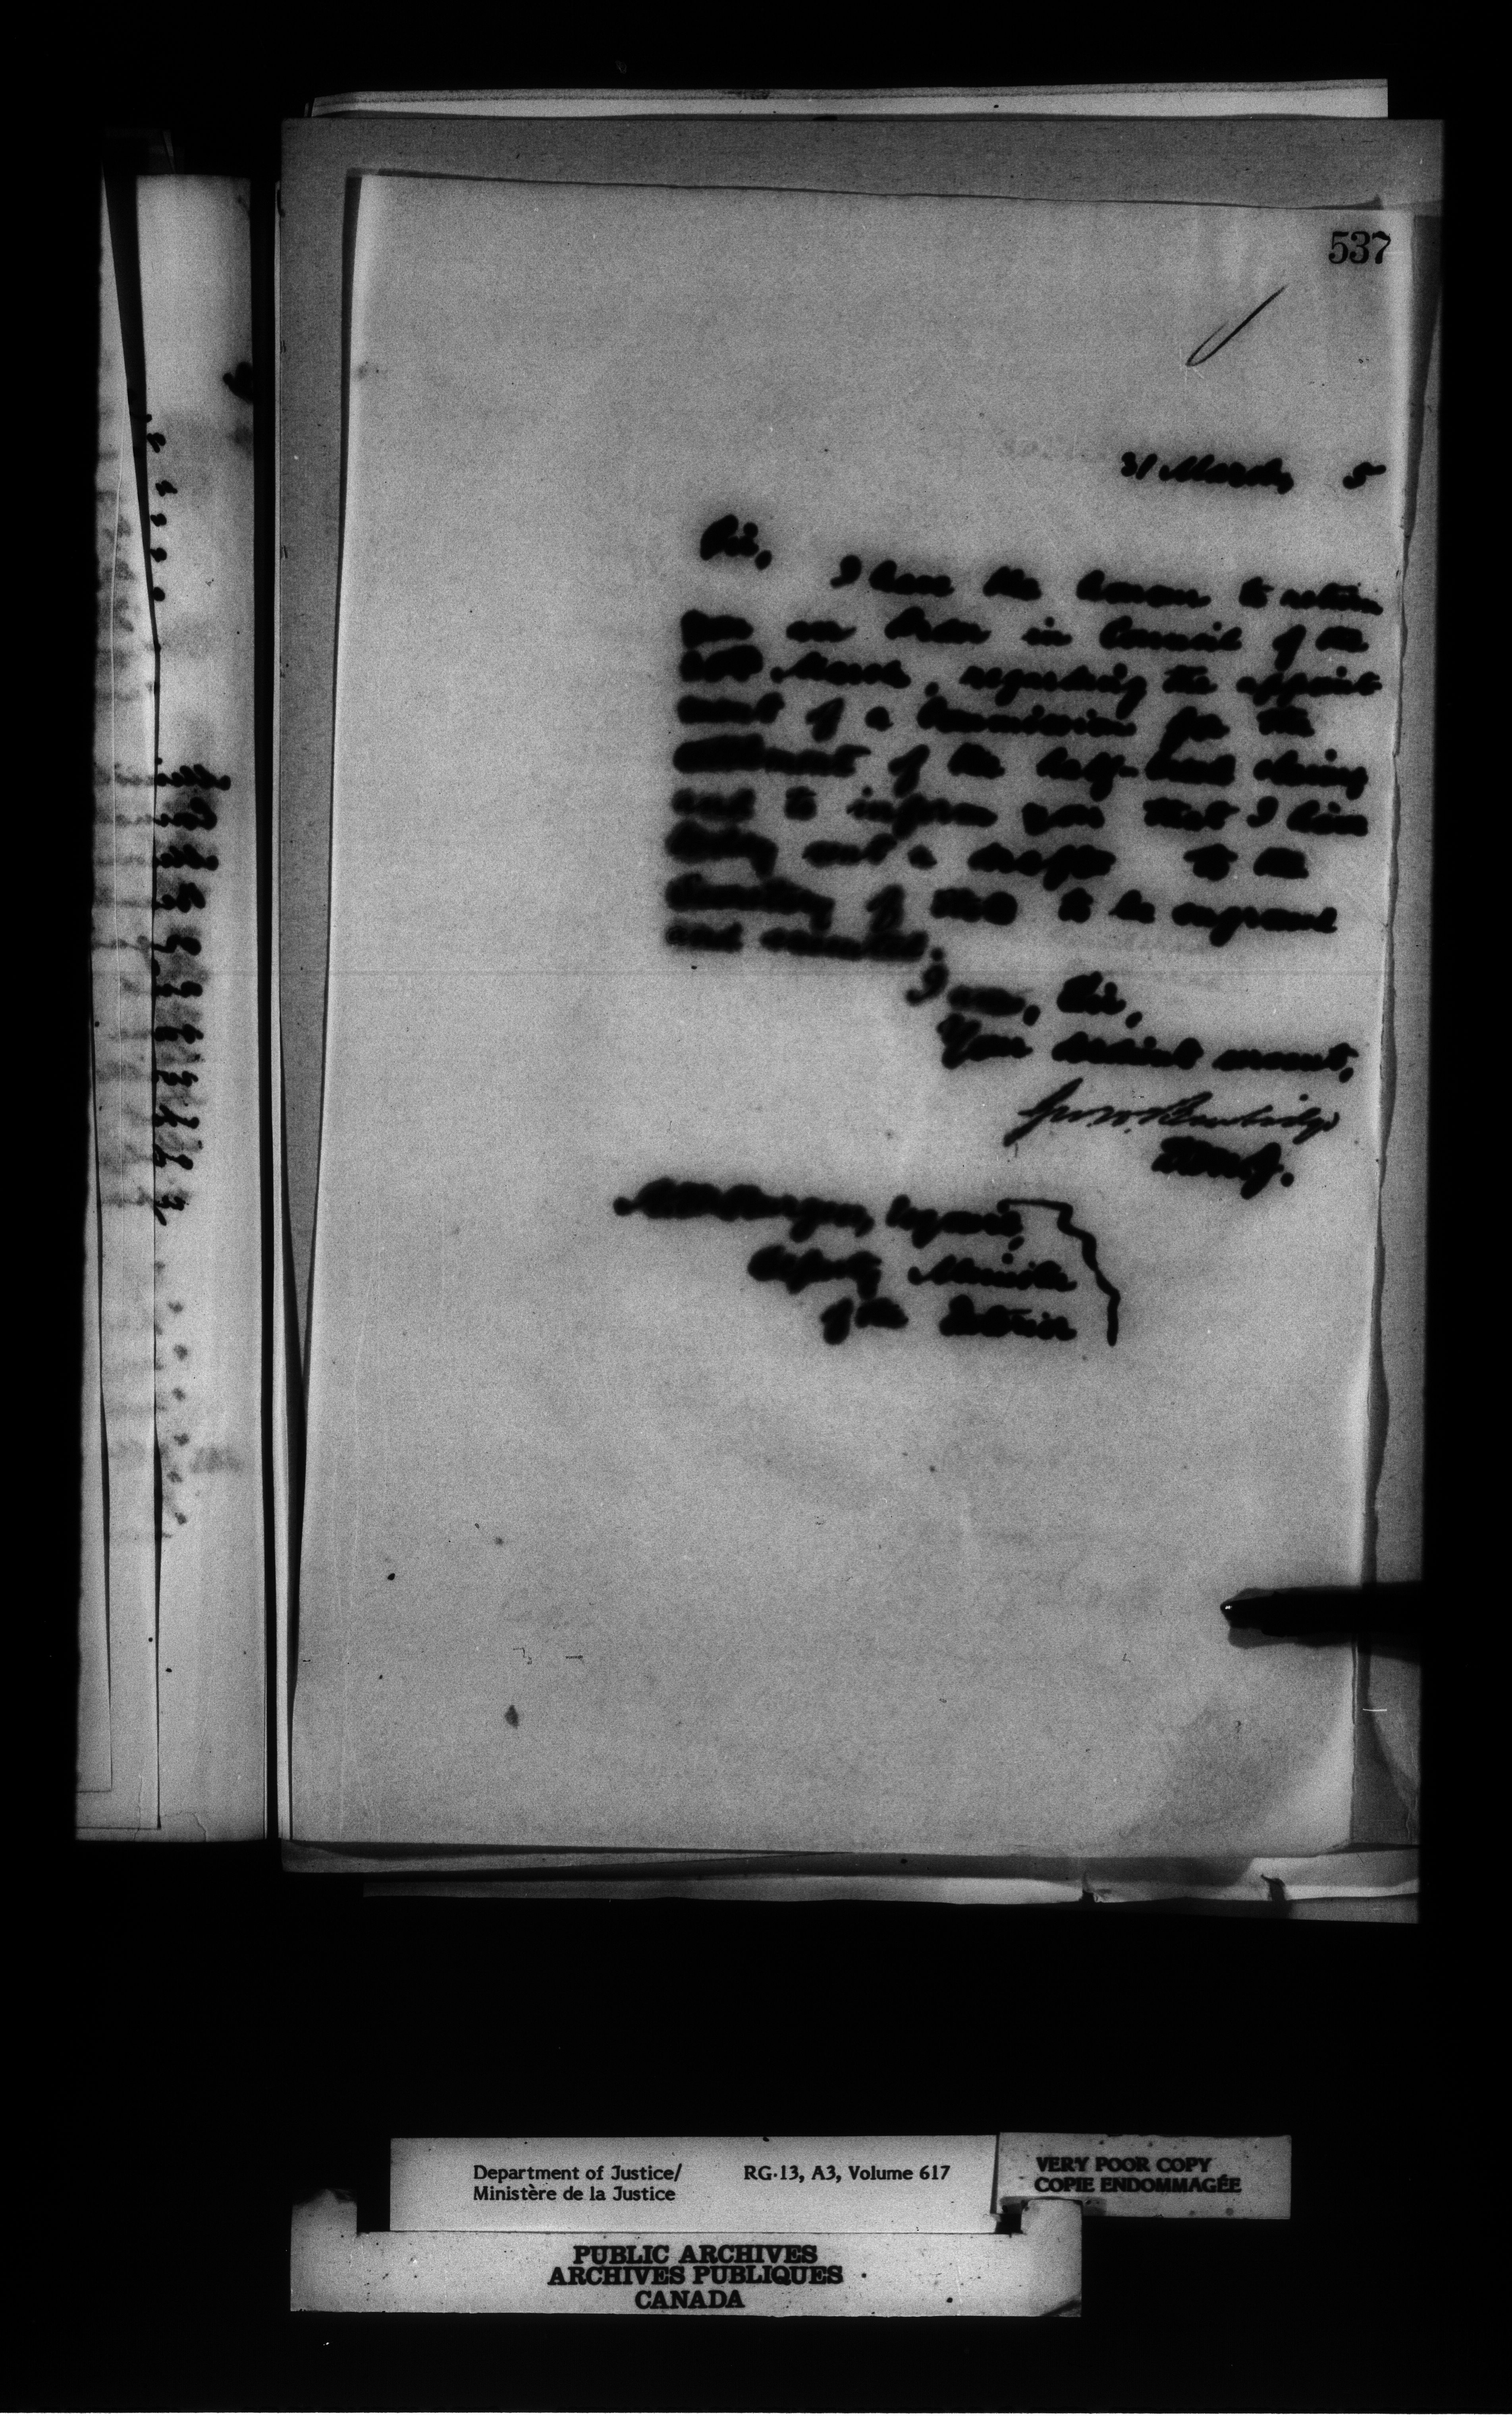 537
31 March, 5
Sir,
I have the honour to return
you an Order in Council of the
March, regarding the appoint-
ment of a Commission for the
settlement of the half-breed claims
and to inform you that I have
today sent a draft to the
Secretary of State to be engrossed
and executed.
I am, Sir,
Your obedient servant,
Geo. W. Burbidge
D.M.J.
A.M. Burgess, Esquire,
Deputy Minister
of the Interior
Department of Justice/
Ministère de la Justice
RG-13, A3, Volume 617
VERY POOR COPY
COPIE ENDOMMAGÉE
PUBLIC ARCHIVES
ARCHIVES PUBLIQUES
CANADA